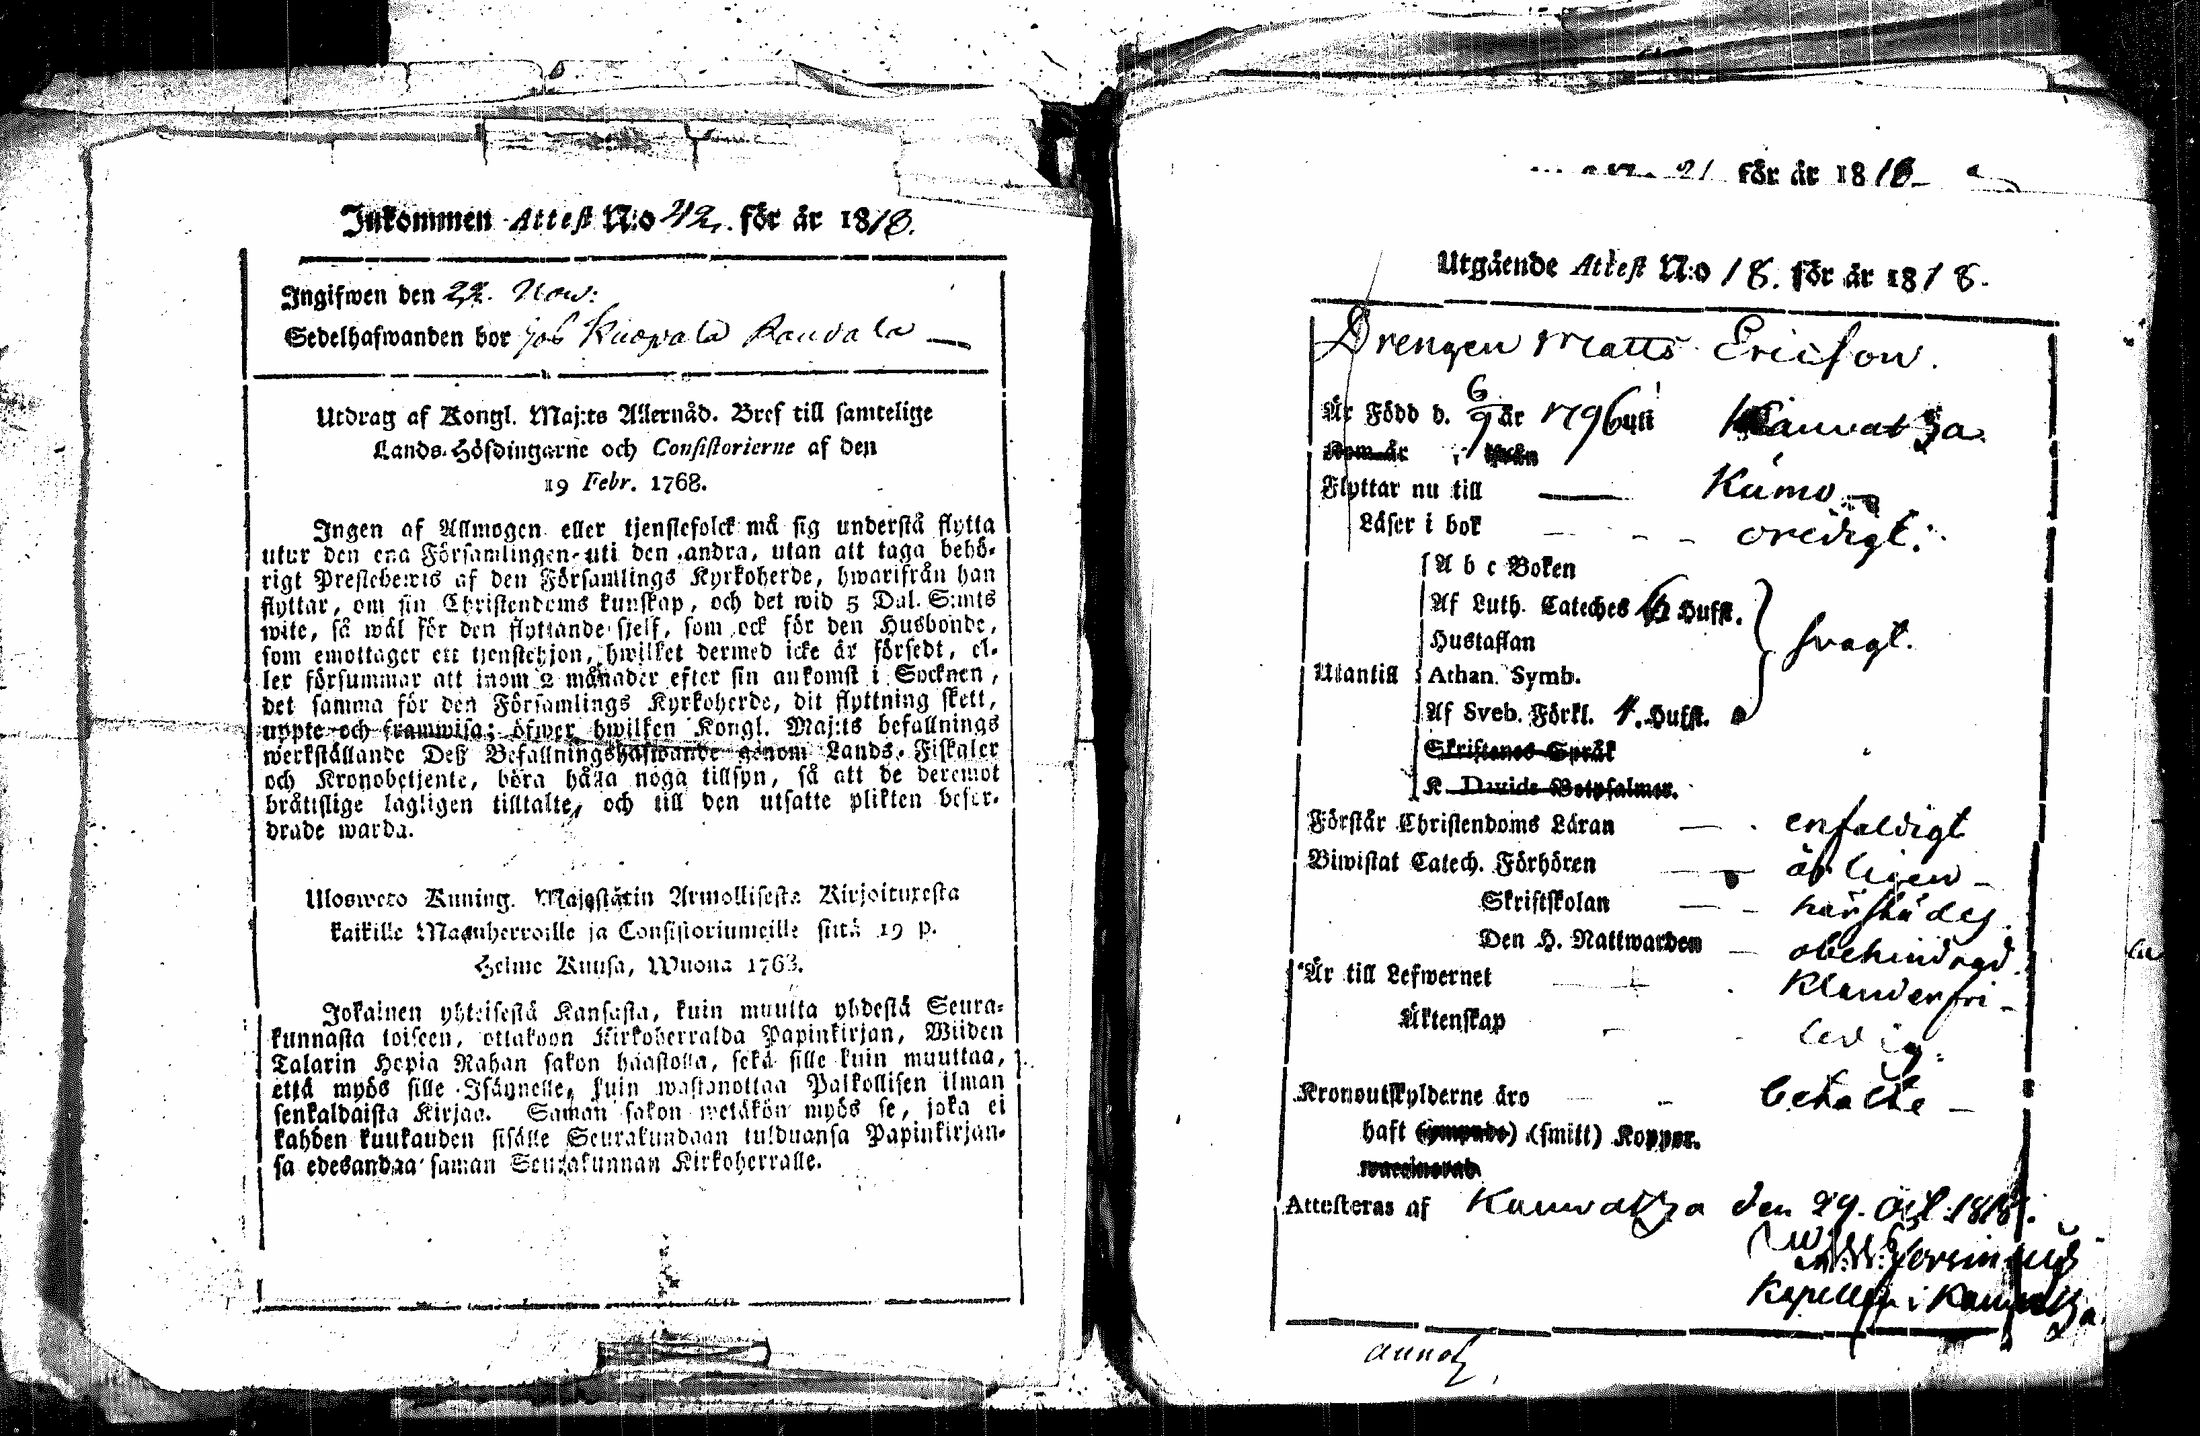 Inkommen Attest N:o 42. för år 1818.
Ingifwen den 22. Nov:
Sedelhafwanden bor hos Kuopala Raudala
Utdrag af Kongl. Maj:ts Allernåd. Bref till samtelige
Lands-Höfdingarne och Consistorierne af den
19 Febr. 1768.
Ingen af Allmogen eller tjenstefolck må sig understå flytta
utur den ena Församlingen uti den andra, utan att taga behö-
rigt Prestebewis af den Församlings Kyrkoherde, hwarifrån han
flyttar, om sin Christendoms kunskap, och det wid 5 Dal. S:mts
wite, så wäl för den flyttande sjelf, som ock för den Husbonde,
som emottager ett tjenstehjon, hwilket dermed icke är försedt, el-
ler försummar att inom 2 månader efter sin ankomst i Socknen,
det samma för den Församlings Kyrkoherde, dit flyttning skett,
uppte och framwisa; öfwer hwilken Kongl. Maj:ts befallnings
werkställande Deß Befallningshafwande genom Lands-Fiskaler
och Kronobetjente, böra hålla noga tillsyn, så att de deremot
bråttslige lagligen tilltalte, och till den utsatte plikten befor-
drade warda.
Ulosweto Kuning. Majestätin Armollisesta Kirjoituxesta
kaikille Maanherroille ja Consistoriumeille siitä 19 p.
Helme Kuusa, Wuona 1768.
Jokainen yhteisestä Kansasta, kuin muutta yhdestä Seura-
kunnasta toiseen, ottakoon Kirkoherralda Papinkirjan, Wiiden
Talarin Hopia Rahan sakon haastolla, sekä sille kuin muuttaa,
että myös sille Isännelle, kuin wastanottaa Palkollisen ilman
senkaldaista Kirjaa. Saman sakon wetäkön myös se, joka ei
kahden kuukauden sisälle Seurakundaan tulduansa Papinkirjan-
sa edesandaa saman Seurakunnan Kirkoherralle.
21 för år 1818
Utgående Attest N:o 18. för år 1818.
Drengen Matts Ericson.
Är Född d. 6/9 år 1796 uti Kauvatza
Kom år från
Flyttar nu till Kumo
Läser i bok oredigt.
A b c Boken
Af Luth. Cateches Hufst.
Hustaflan svagt.
Utantill Athan. Symb.
Af Sveb. Förkl. 4. Hufst.
Skriftenes Språk
K. Davids Botpsalmer.
Förstår Christendoms Läran enfaldigt
Biwistat Catech. Förhören årligen
Skriftskolan härstädes
Den H. Nattwarden obehindrad
Är till Lefwernet klanderfri
Äktenskap ledig.
Kronoutskylderne äro betalte
haft (ympade) (smitt) Koppor.
waccinerad
Attesteras af Kauvatza den 29. Oct. 1818.
Kapellan i Kauvatza.
annot.